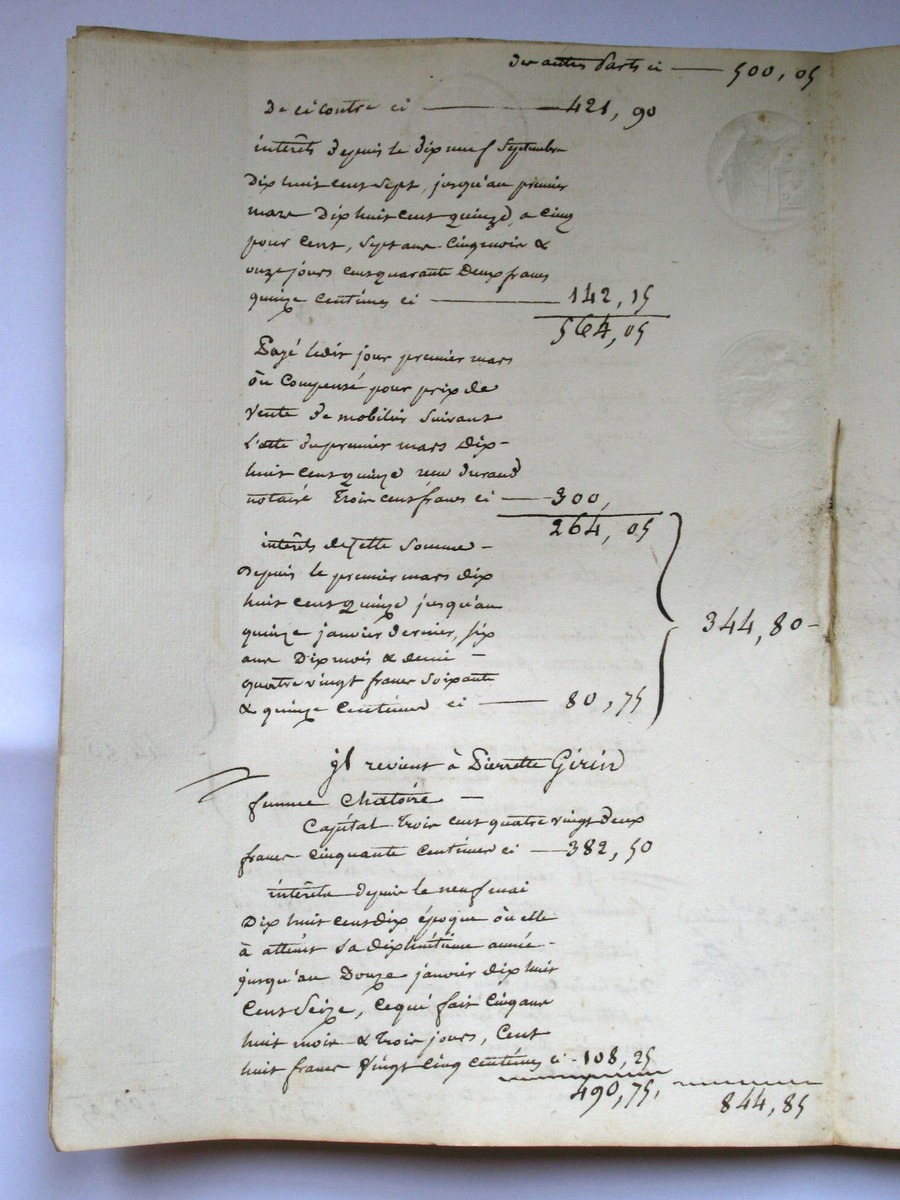 Des autres Parts ci — 500, 05
De ci contre ci — 421, 90
intérêts depuis le dix neuf Septembre
Dix huit cent sept, jusqu'au premier
mars Dix huit cent quinze, a cinq
pour cent, sept ans cinq mois &
onze jours cent quarante deux francs
quinze centimes ci — 142, 15
564, 05
Payé ledit jour premier mars
ou Compensé pour prix de
vente de mobilier suivant
l'acte du premier mars Dix-
huit cent quinze reçu Durand
notaire Trois cent francs ci — 300,
264, 05
intérêts de Cette Somme —
Depuis le premier mars dix
huit cent quinze jusqu'au
quinze janvier dernier, six
ans Dix mois & demi —
quatre vingt francs soixante
& quinze Centimes ci — 80, 75
344, 80 -
jl revient à Pierrette Girin
femme Chatoire —
Capital Trois cent quatre vingt deux
francs cinquante centimes ci — 382, 50
intérêts depuis le neuf mai
Dix huit cent dix époque où elle
à atteint sa dix huitième année -
jusqu'au Douze janvier dix huit
Cent Seize, ce qui fait Cinq ans
huit mois & Trois jours, Cent
huit francs Vingt cinq centimes ci - 108, 25
490, 75, 844, 85